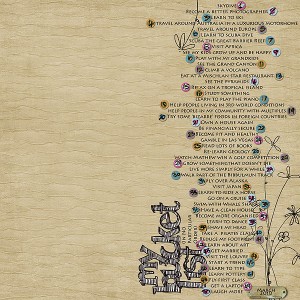 SKYDIVE
BECOME A BETTER PHOTOGRAPHER
LEARN TO SKI
TRAVEL AROUND AUSTRALIA IN A LUXURIOUS MOTORHOME
TRAVEL AROUND EUROPE
LEARN TO SCUBA DIVE
SCUBA THE GREAT BARRIER REEF
VISIT AFRICA
SEE MY KIDS GROW UP AND BE HAPPY
PLAY WITH MY GRANDKIDS
SEE THE GRAND CANYON
CLIMB A VOLCANO
EAT AT A MISCHLAN STAR RESTAURANT
SEE THE PYRAMIDS
RELAX ON A TROPICAL ISLAND
STUDY SOMETHING
LEARN TO PLAY THE PIANO
HELP PEOPLE LIVING IN 3RD WORLD CONDITIONS
HELP PEOPLE IN MY COMMUNITY MULTIPLE
TRY SOME BIZARRE FOODS IN FOREIGN COUNTRIES
OWN A HOUSE AGAIN
BE FINANCIALLY SECURE
BECOME FIT AND HEALTHY
GAMBLE IN LAS VEGAS
READ LOTS OF BOOKS
RE-LEARN GEOLOGY
WATCH MATHEW WIN A GOLF COMPETITION
GROW SOMETHING THAT DOESN'T DIE
LIVE MORE SIMPLY FOR A WHILE
WALK PART OF THE BIBBULMUN TRACK
FLY OVER ALASKA
VISIT JAPAN
LEARN TO RIDE A HORSE
GO ON A CRUISE
SWIM WITH WHALE SHARKS
HAVE A CLEAN HOUSE
BECOME MORE ORGANISED
LEARN TO DANCE
SHAVE MY HEAD
TAKE A PILATES CLASS
REDUCE MY FOOTPRINT
LEARN ABOUT ART
GET MARRIED
VISIT THE LOUVRE
START A TREND
LEARN TO TYPE
LEARN POTTERY
GET A LAPTOP
LAUGH MORE
my
bucket
list
IN NO
PARTICULAR
ORDER
MARCH